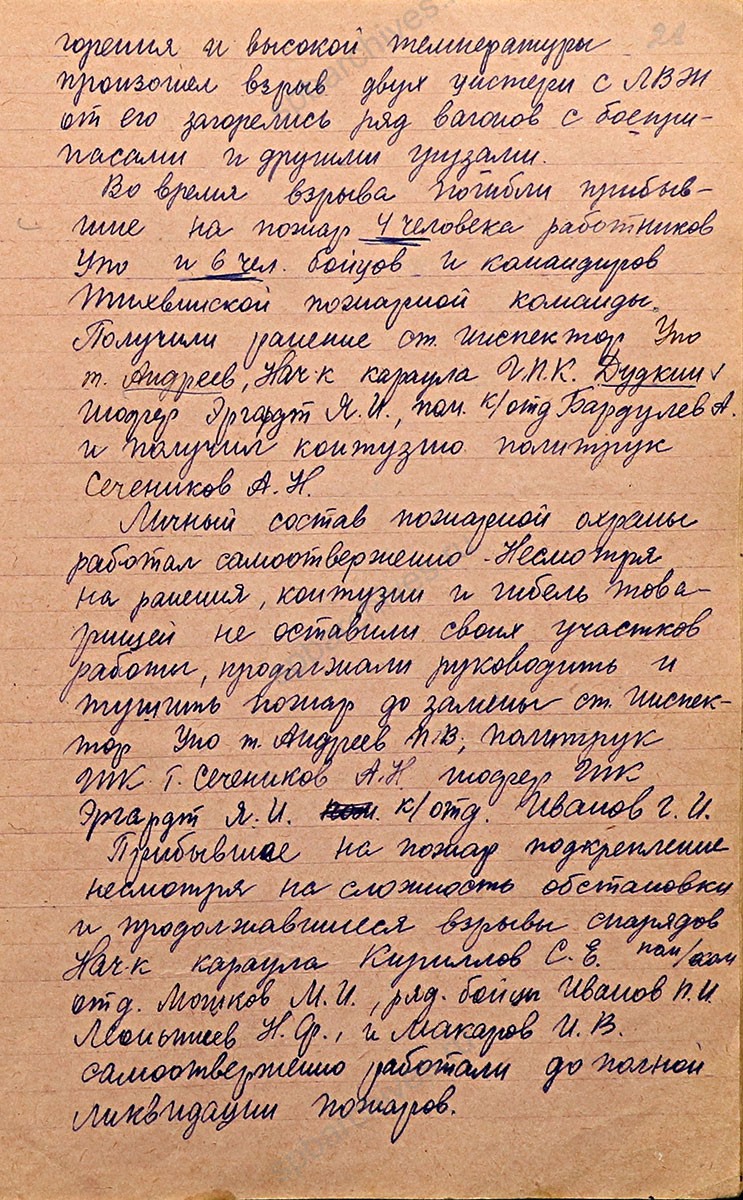 21
горения и высокой температуры
произошел взрыв двух цистерн с ЛВЖ
от его загорелись ряд вагонов с боепри-
пасами и другими грузами.
Во время взрыва погибли прибыв-
шие на пожар 4 человека работников
Упо и 6 чел. бойцов и командиров
Тихвинской пожарной команды.
Получили ранение ст. инспектор Упо
т. Андреев, Нач-к караула Г.П.К. Дудкин
шофер Эргардт Я.И., пом. к/отд Бардулев А.
и получил контузию политрук
Сечеников А.Н.
Личный состав пожарной охраны
работал самоотверженно - Несмотря
на ранения, контузии и гибель това-
рищей не оставили своих участков
работы, продолжали руководить и
тушить пожар до замены ст. инспек-
тор Упо т. Андреев П.В., политрук
Т. Сечеников А.Н. шофер
Эргардт Я.И. к/отд. Иванов Г.И.
Прибывшее на пожар подкрепление
несмотря на сложность обстановки
и продолжавшиеся взрывы снарядов
Нач-к караула Кириллов С.Е. пом/ком
отд. Мошков М.И., ряд. бойцы Иванов П.И
Леонтиев Н.Ф., и Макаров И.В.
самоотверженно работали до полной
ликвидации пожаров.